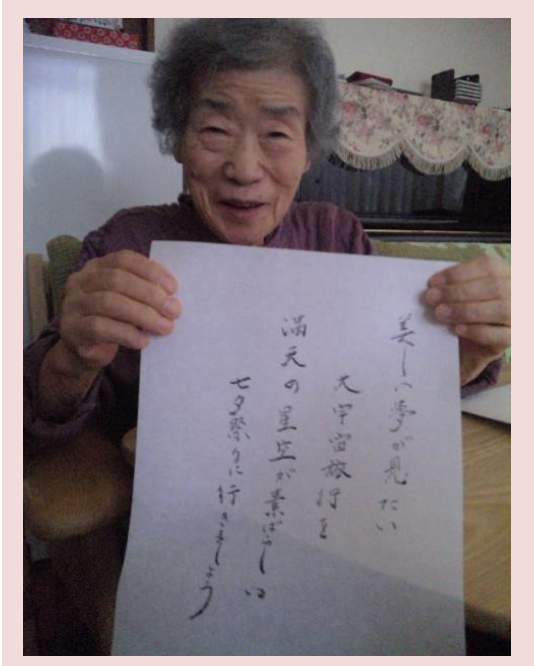 美しい夢が見たい
大宇宙旅行を
満天の星空が素ばらしい
七夕祭りに行きましょう